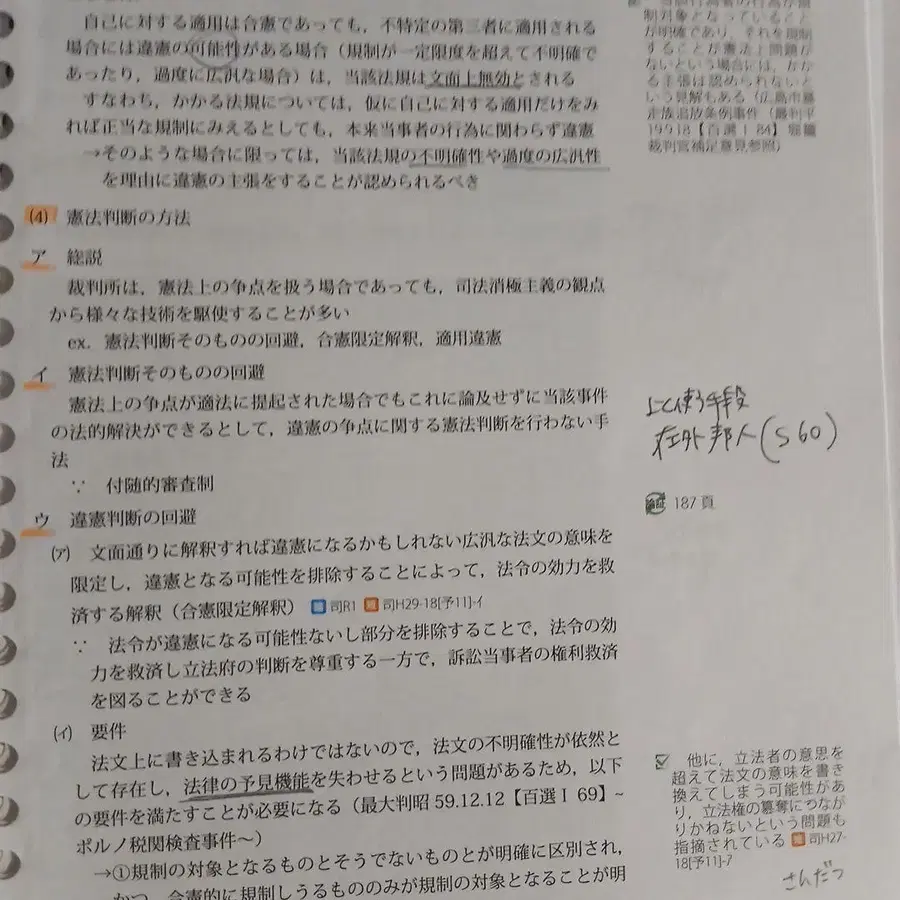 自己に対する適用は合憲であっても，不特定の第三者に適用される
場合には違憲の可能性がある場合（規制が一定限度を超えて不明確で
あったり，過度に広汎な場合）は，当該法規は文面上無効とされる
すなわち，かかる法規については，仮に自己に対する適用だけをみ
れば正当な規制にみえるとしても，本来当事者の行為に関わらず違憲
→そのような場合に限っては，当該法規の不明確性や過度の広汎性
を理由に違憲の主張をすることが認められるべき
制対象となっていること
が明確であり，それを規制
することが憲法上問題が
ないという場合には，かか
る主張は認められないと
いう見解もある（広島市暴
走族追放条例事件（最判平
19.9.18【百選Ⅰ84】堀籠
裁判官補足意見参照）
(4) 憲法判断の方法
ア 総説
裁判所は，憲法上の争点を扱う場合であっても，司法消極主義の観点
から様々な技術を駆使することが多い
ex. 憲法判断そのものの回避，合憲限定解釈，適用違憲
イ 憲法判断そのものの回避
憲法上の争点が適法に提起された場合でもこれに論及せずに当該事件
の法的解決ができるとして，違憲の争点に関する憲法判断を行わない手
法
∵ 付随的審査制
使う手段
在外邦人(S60)
187頁
ウ 違憲判断の回避
(ア) 文面通りに解釈すれば違憲になるかもしれない広汎な法文の意味を
限定し，違憲となる可能性を排除することによって，法令の効力を救
済する解釈（合憲限定解釈） 司R1 司H29-18[予11]-イ
∵ 法令が違憲になる可能性ないし部分を排除することで，法令の効
力を救済し立法府の判断を尊重する一方で，訴訟当事者の権利救済
を図ることができる
(イ) 要件
法文上に書き込まれるわけではないので，法文の不明確性が依然と
して存在し，法律の予見機能を失わせるという問題があるため，以下
の要件を満たすことが必要になる（最大判昭59.12.12【百選Ⅰ69】~
ポルノ税関検査事件~）
→①規制の対象となるものとそうでないものとが明確に区別され，
かつ，合憲的に規制しうるもののみが規制の対象となることが明
他に，立法者の意思を
超えて法文の意味を書き
換えてしまう可能性があ
り，立法権の簒奪につなが
りかねないという問題も
指摘されている 司H27-
18[予11]-7
さんだつ